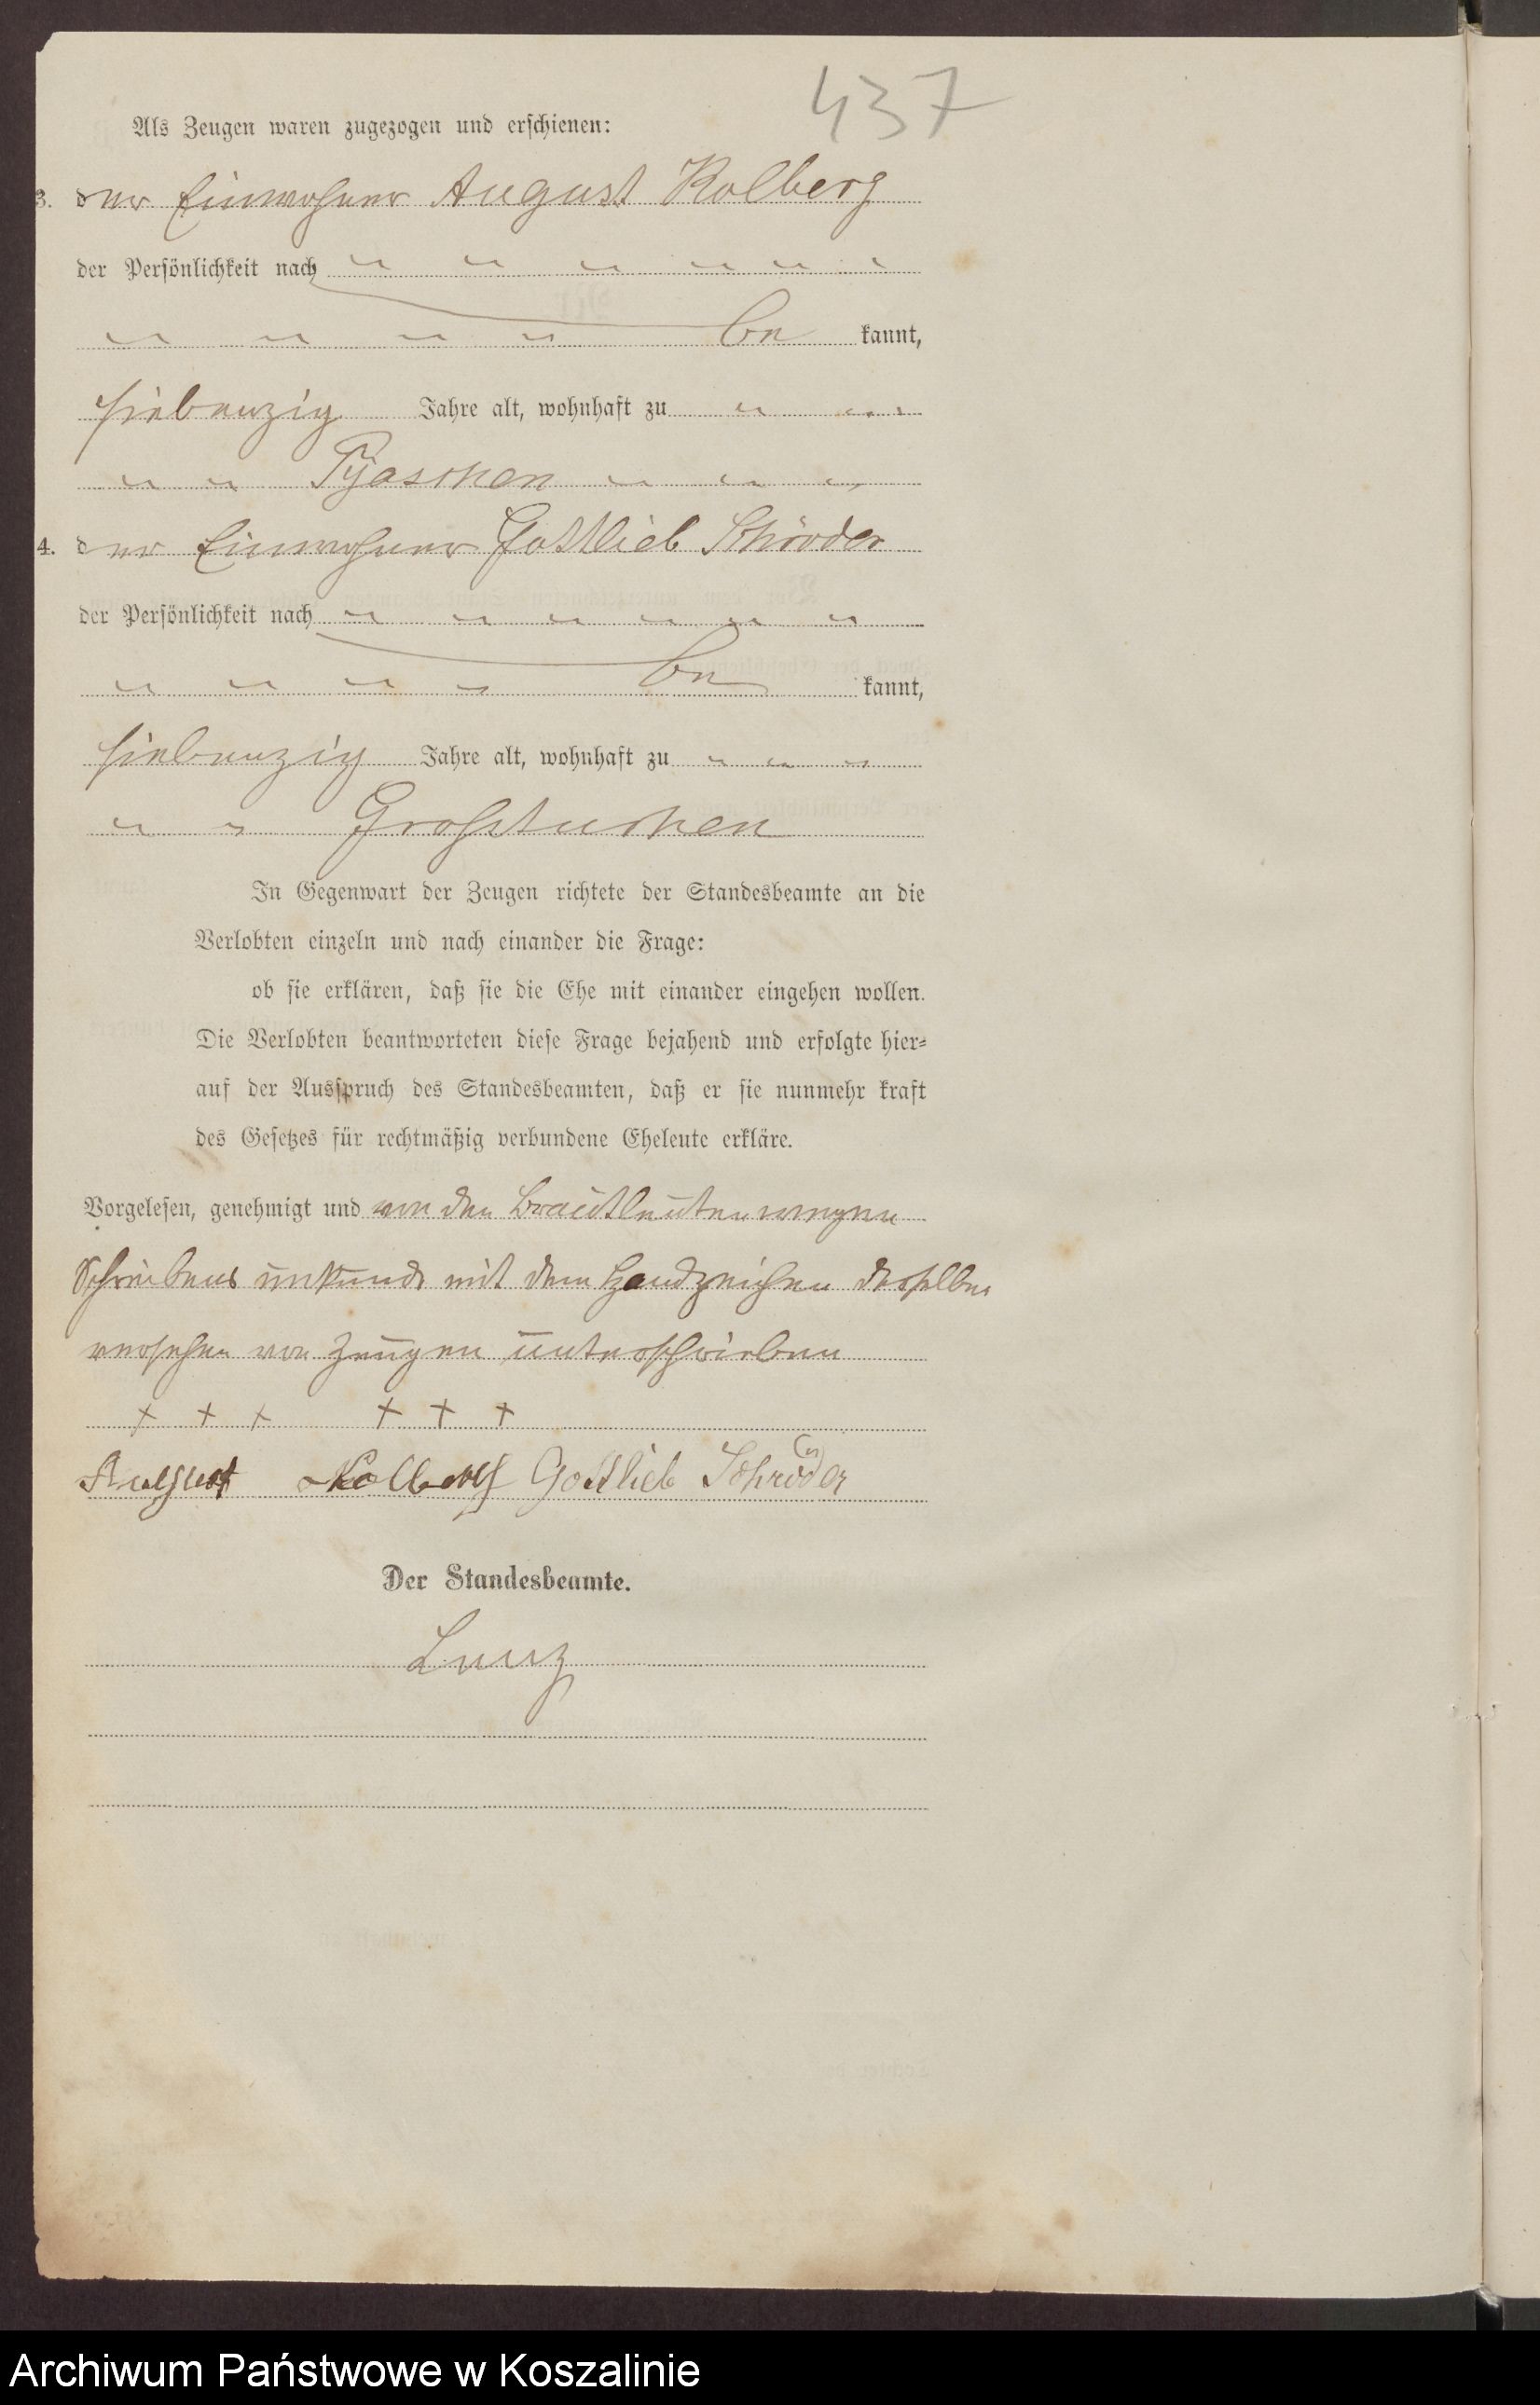 437
Als Zeugen waren zugezogen und erschienen:
3. der Einwohner August Kolberg
der Persönlichkeit nach
be kannt,
siebenzig Jahre alt, wohnhaft zu
Pyaschen
4. der Einwohner Gottlieb Schröder
der Persönlichkeit nach
be kannt,
siebenzig Jahre alt, wohnhaft zu
Großtuchen
In Gegenwart der Zeugen richtete der Standesbeamte an die
Verlobten einzeln und nach einander die Frage:
ob sie erklären, daß sie die Ehe mit einander eingehen wollen.
Die Verlobten beantworteten diese Frage bejahend und erfolgte hier-
auf der Ausspruch des Standesbeamten, daß er sie nunmehr kraft
des Gesetzes für rechtmäßig verbundene Eheleute erkläre.
Vorgelesen, genehmigt und von den Brautleuten wegen
Schreibens unkunde mit dem Handzeichen derselben
versehen von Zeugen unterschrieben
+ + + + + +
August Kolberg Gottlieb Schröder
Der Standesbeamte.
Archiwum Państwowe w Koszalinie